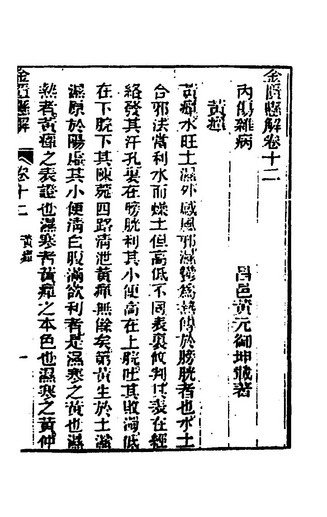 金匱懸解卷十二
昌邑黃元御坤載著
內傷雜病
黃疸
黃疸水旺土濕外感風邪濕鬱為熱傳於膀胱者也水土
合邪法當利水而燥土但高低不同表裏攸判其表在經
絡發其汗孔裏在膀胱利其小便高在上脘吐其敗濁低
在下脘下其陳菀四路清泄黃疸無餘矣第黃生於土濕
濕原於陽虛其小便清白腹滿欲利者是濕寒之黃也濕
熱者黃疸之表證也濕寒者黃疸之本色也濕寒之黃仲
金匱懸解
卷十二 黃疸
一